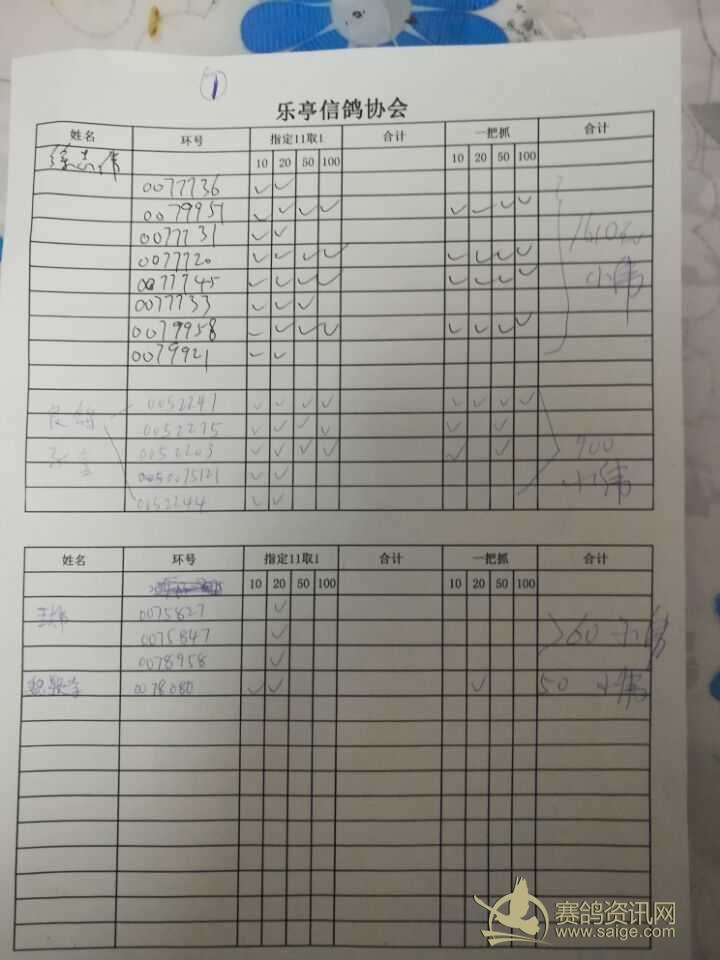 1
乐亭信鸽协会
姓名 环号 指定11取1 合计 一把抓 合计
10 20 50 100 10 20 50 100
徐志伟
0077736 ✓ ✓
0079951 ✓ ✓ ✓ ✓ ✓ ✓ ✓ ✓
0077731 ✓ ✓
0077720 ✓ ✓ ✓ ✓ ✓ ✓ ✓ ✓
0077745 ✓ ✓ ✓ ✓ ✓ ✓ ✓ ✓
小伟
0077733 ✓ ✓ ✓
0079958 ✓ ✓ ✓ ✓ ✓ ✓ ✓ ✓
0079921 ✓ ✓
0052247 ✓ ✓ ✓ ✓ ✓ ✓ ✓ ✓
0052275 ✓ ✓ ✓ ✓ ✓
0052203 ✓ ✓ ✓ ✓ ✓ ✓ 900
✓ ✓ 小伟
0052244 ✓ ✓
姓名 环号 指定11取1 合计 一把抓 合计
10 20 50 100 10 20 50 100
0075827 ✓
0075847 ✓ 60 小伟
0078958 ✓
0078080 ✓ ✓ ✓ 50 小伟
赛鸽资讯网
www.saige.com